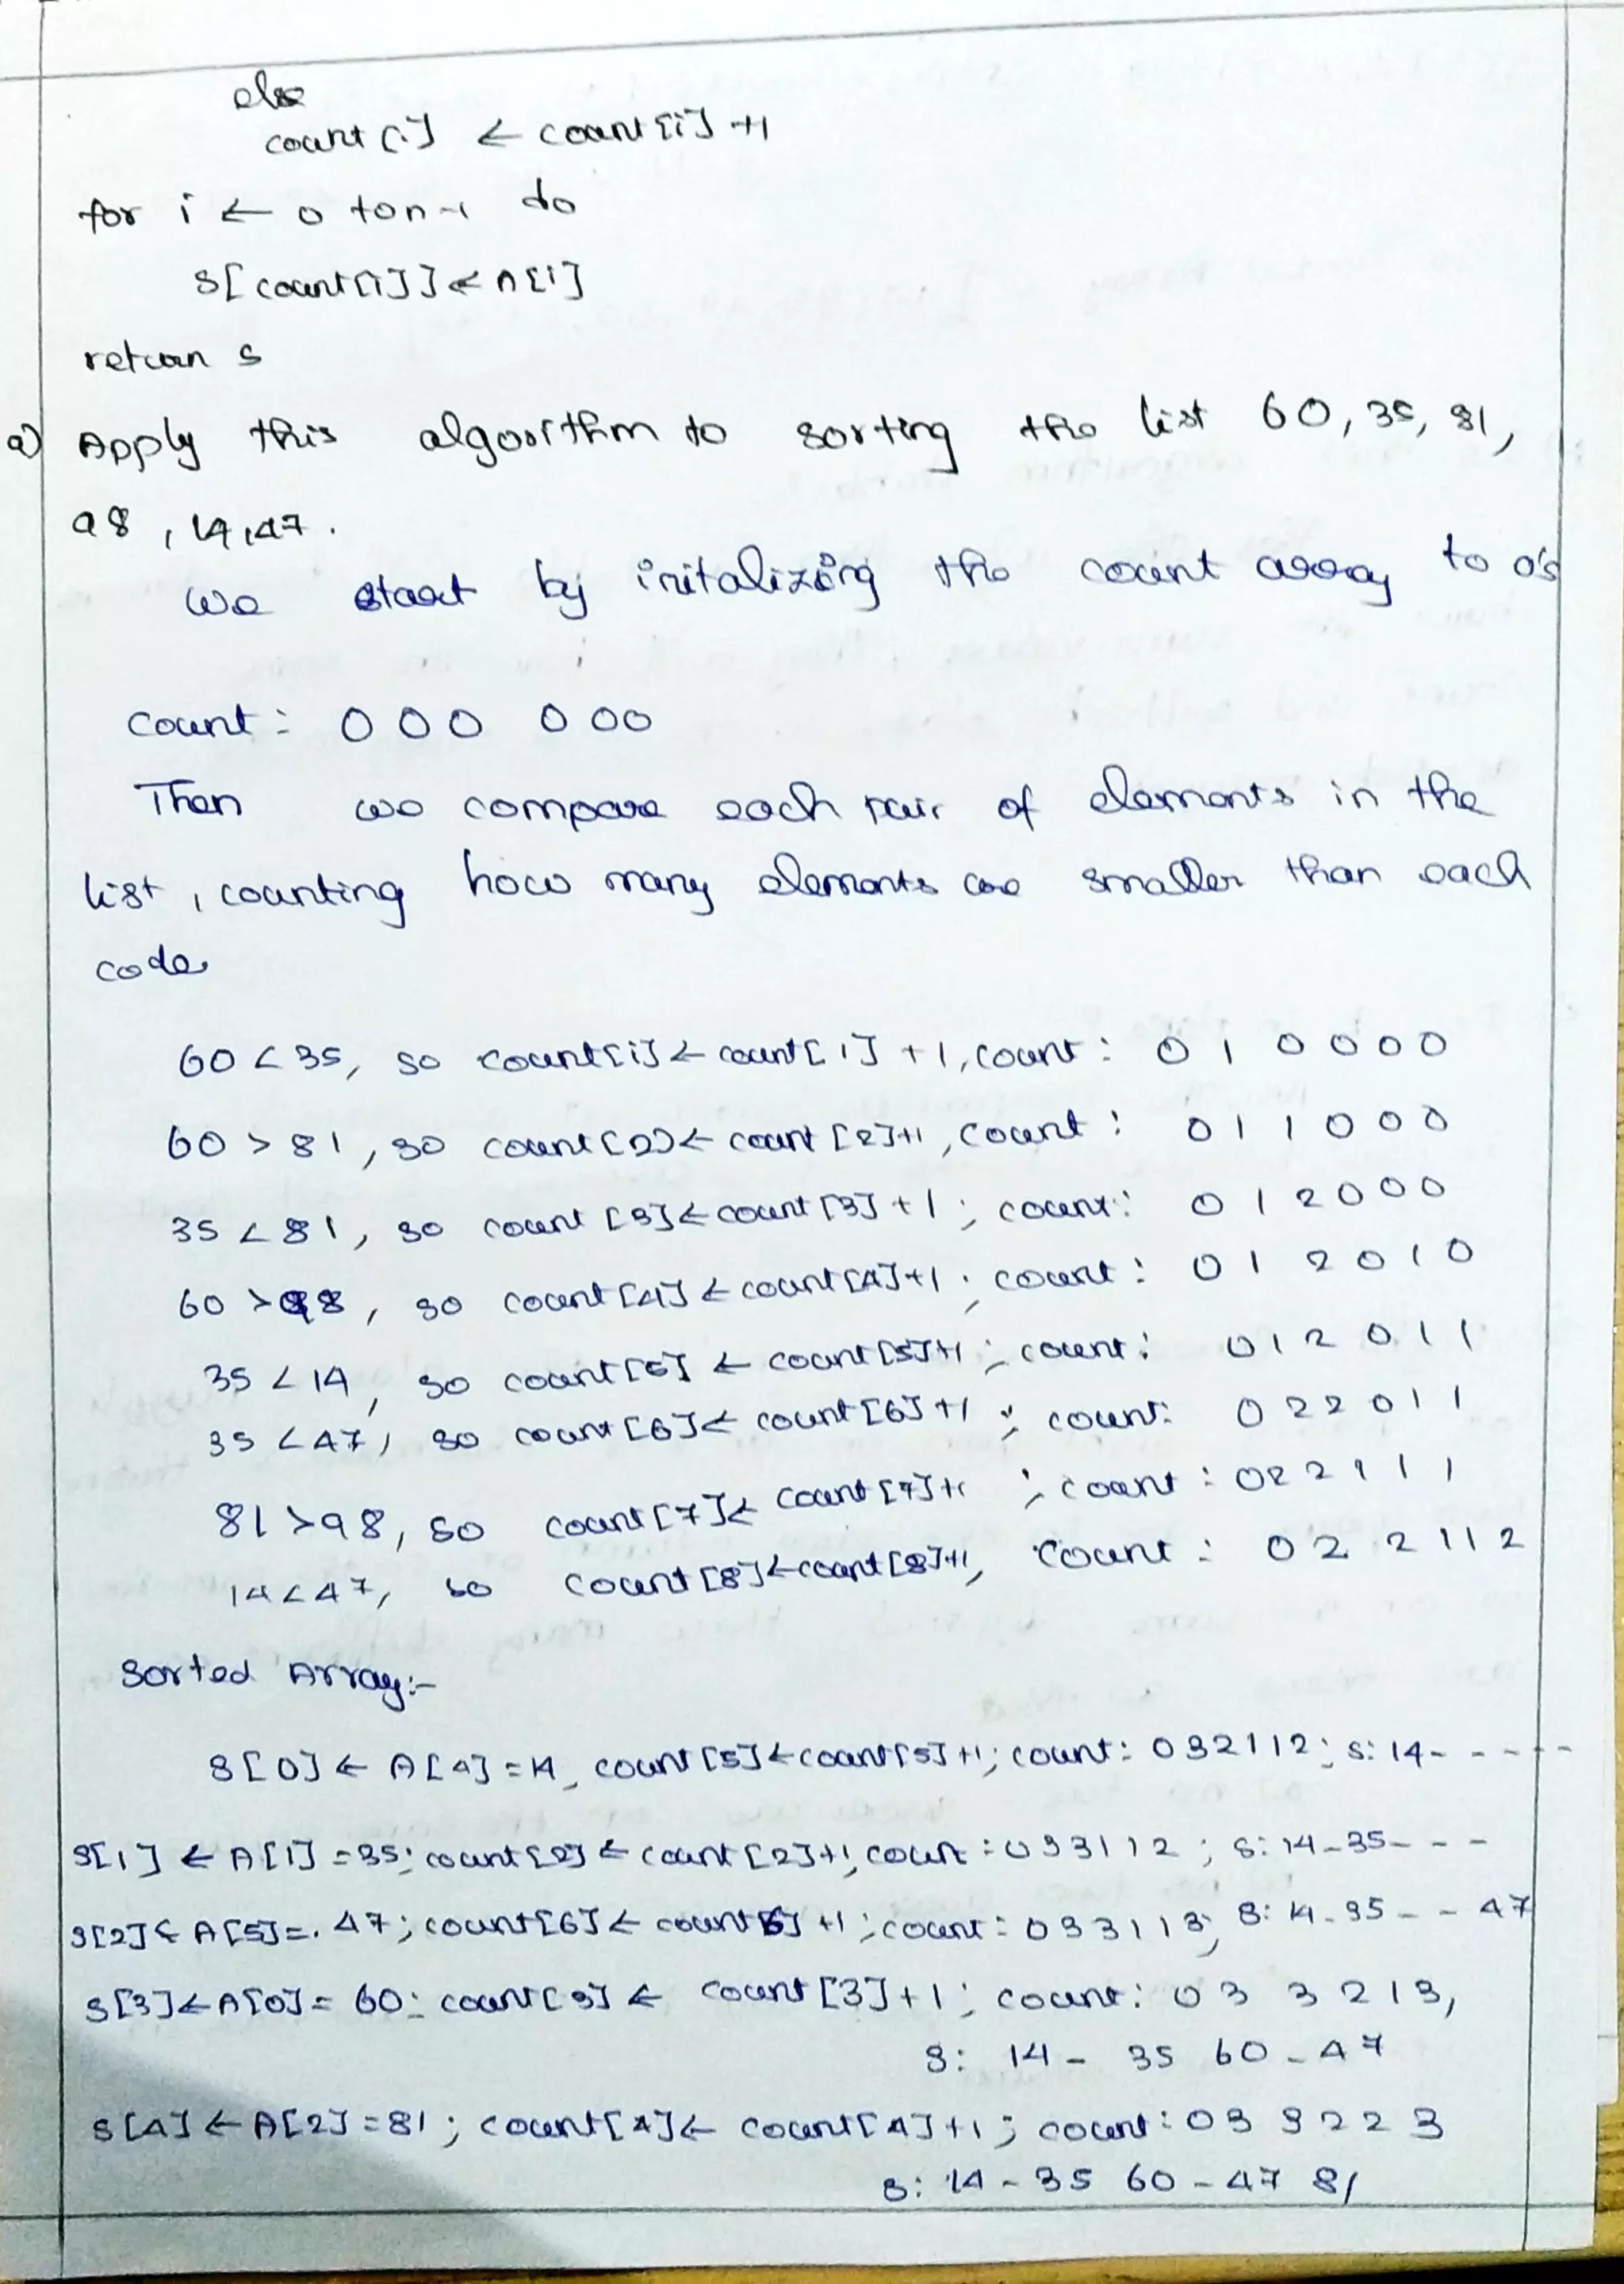 else
count[i] ← count[i] +1
for i ← 0 to n-1 do
S[count[i]] ← A[i]
return S
a) Apply this algorithm to sorting the list 60, 35, 81,
98, 14, 47.
We start by initalizing the count array to 0's
Count: 0 0 0 0 0 0
Then we compare each pair of elements in the
list, counting how many elements are smaller than each
code
60 < 35, so count[i] ← count[1] +1, count: 0 1 0 0 0 0
60 > 81, so count[2] ← count[2]+1, count: 0 1 1 0 0 0
35 < 81, so count[3] ← count[3] +1; count: 0 1 2 0 0 0
60 > 98, so count[4] ← count[4]+1; count: 0 1 2 0 1 0
35 < 14, so count[5] ← count[5]+1; count: 0 1 2 0 1 1
35 < 47, so count[6] ← count[6]+1; count: 0 2 2 0 1 1
81 > 98, so count[7] ← count[7]+1; count: 0 2 2 1 1 1
14 < 47, so count[8] ← count[8]+1, Count: 0 2 2 1 1 2
Sorted Array:-
S[0] ← A[4] = 14, count[5] ← count[5]+1; count: 032112; S: 14- - - - -
S[1] ← A[1] = 35; count[2] ← count[2]+1; count: 033112; S: 14-35- - -
S[2] ← A[5] =. 47; count[6] ← count[6] +1; count: 033113; S: 14-35 - - 47
S[3] ← A[0] = 60; count[3] ← count[3]+1; count: 0 3 3 2 1 3,
S: 14 - 35 60 - 47
S[4] ← A[2] = 81; count[4] ← count[4]+1; count: 0 3 3 2 2 3
S: 14 - 35 60 - 47 81